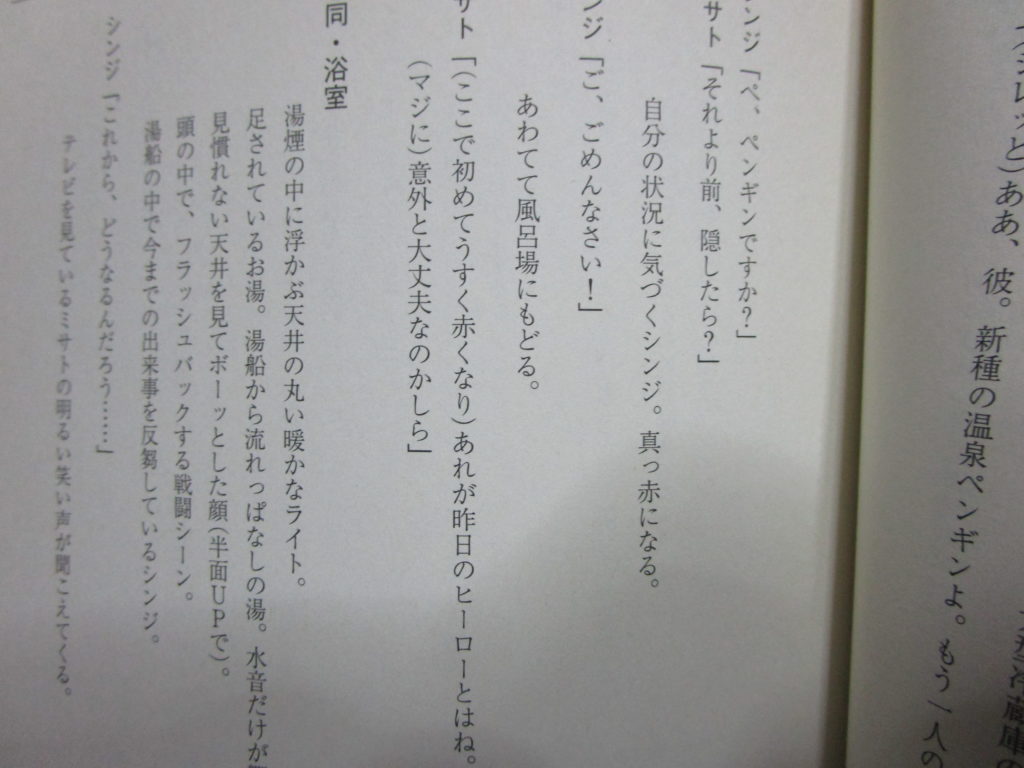 ああ、彼。新種の温泉ペンギンよ。もう一人の
ンジ「ペ、ペンギンですか?」
サト「それより前、隠したら?」
自分の状況に気づくシンジ。真っ赤になる。
ンジ「ご、ごめんなさい!」
あわてて風呂場にもどる。
サト「(ここで初めてうすく赤くなり)あれが昨日のヒーローとはね。
(マジに)意外と大丈夫なのかしら」
同・浴室
湯煙の中に浮かぶ天井の丸い暖かなライト。
足されているお湯。湯船から流れっぱなしの湯。水音だけが
見慣れない天井を見てボーッとした顔(半面UPで)。
頭の中で、フラッシュバックする戦闘シーン。
湯船の中で今までの出来事を反芻しているシンジ。
シンジ「これから、どうなるんだろう……」
テレビを見ているミサトの明るい笑い声が聞こえてくる。